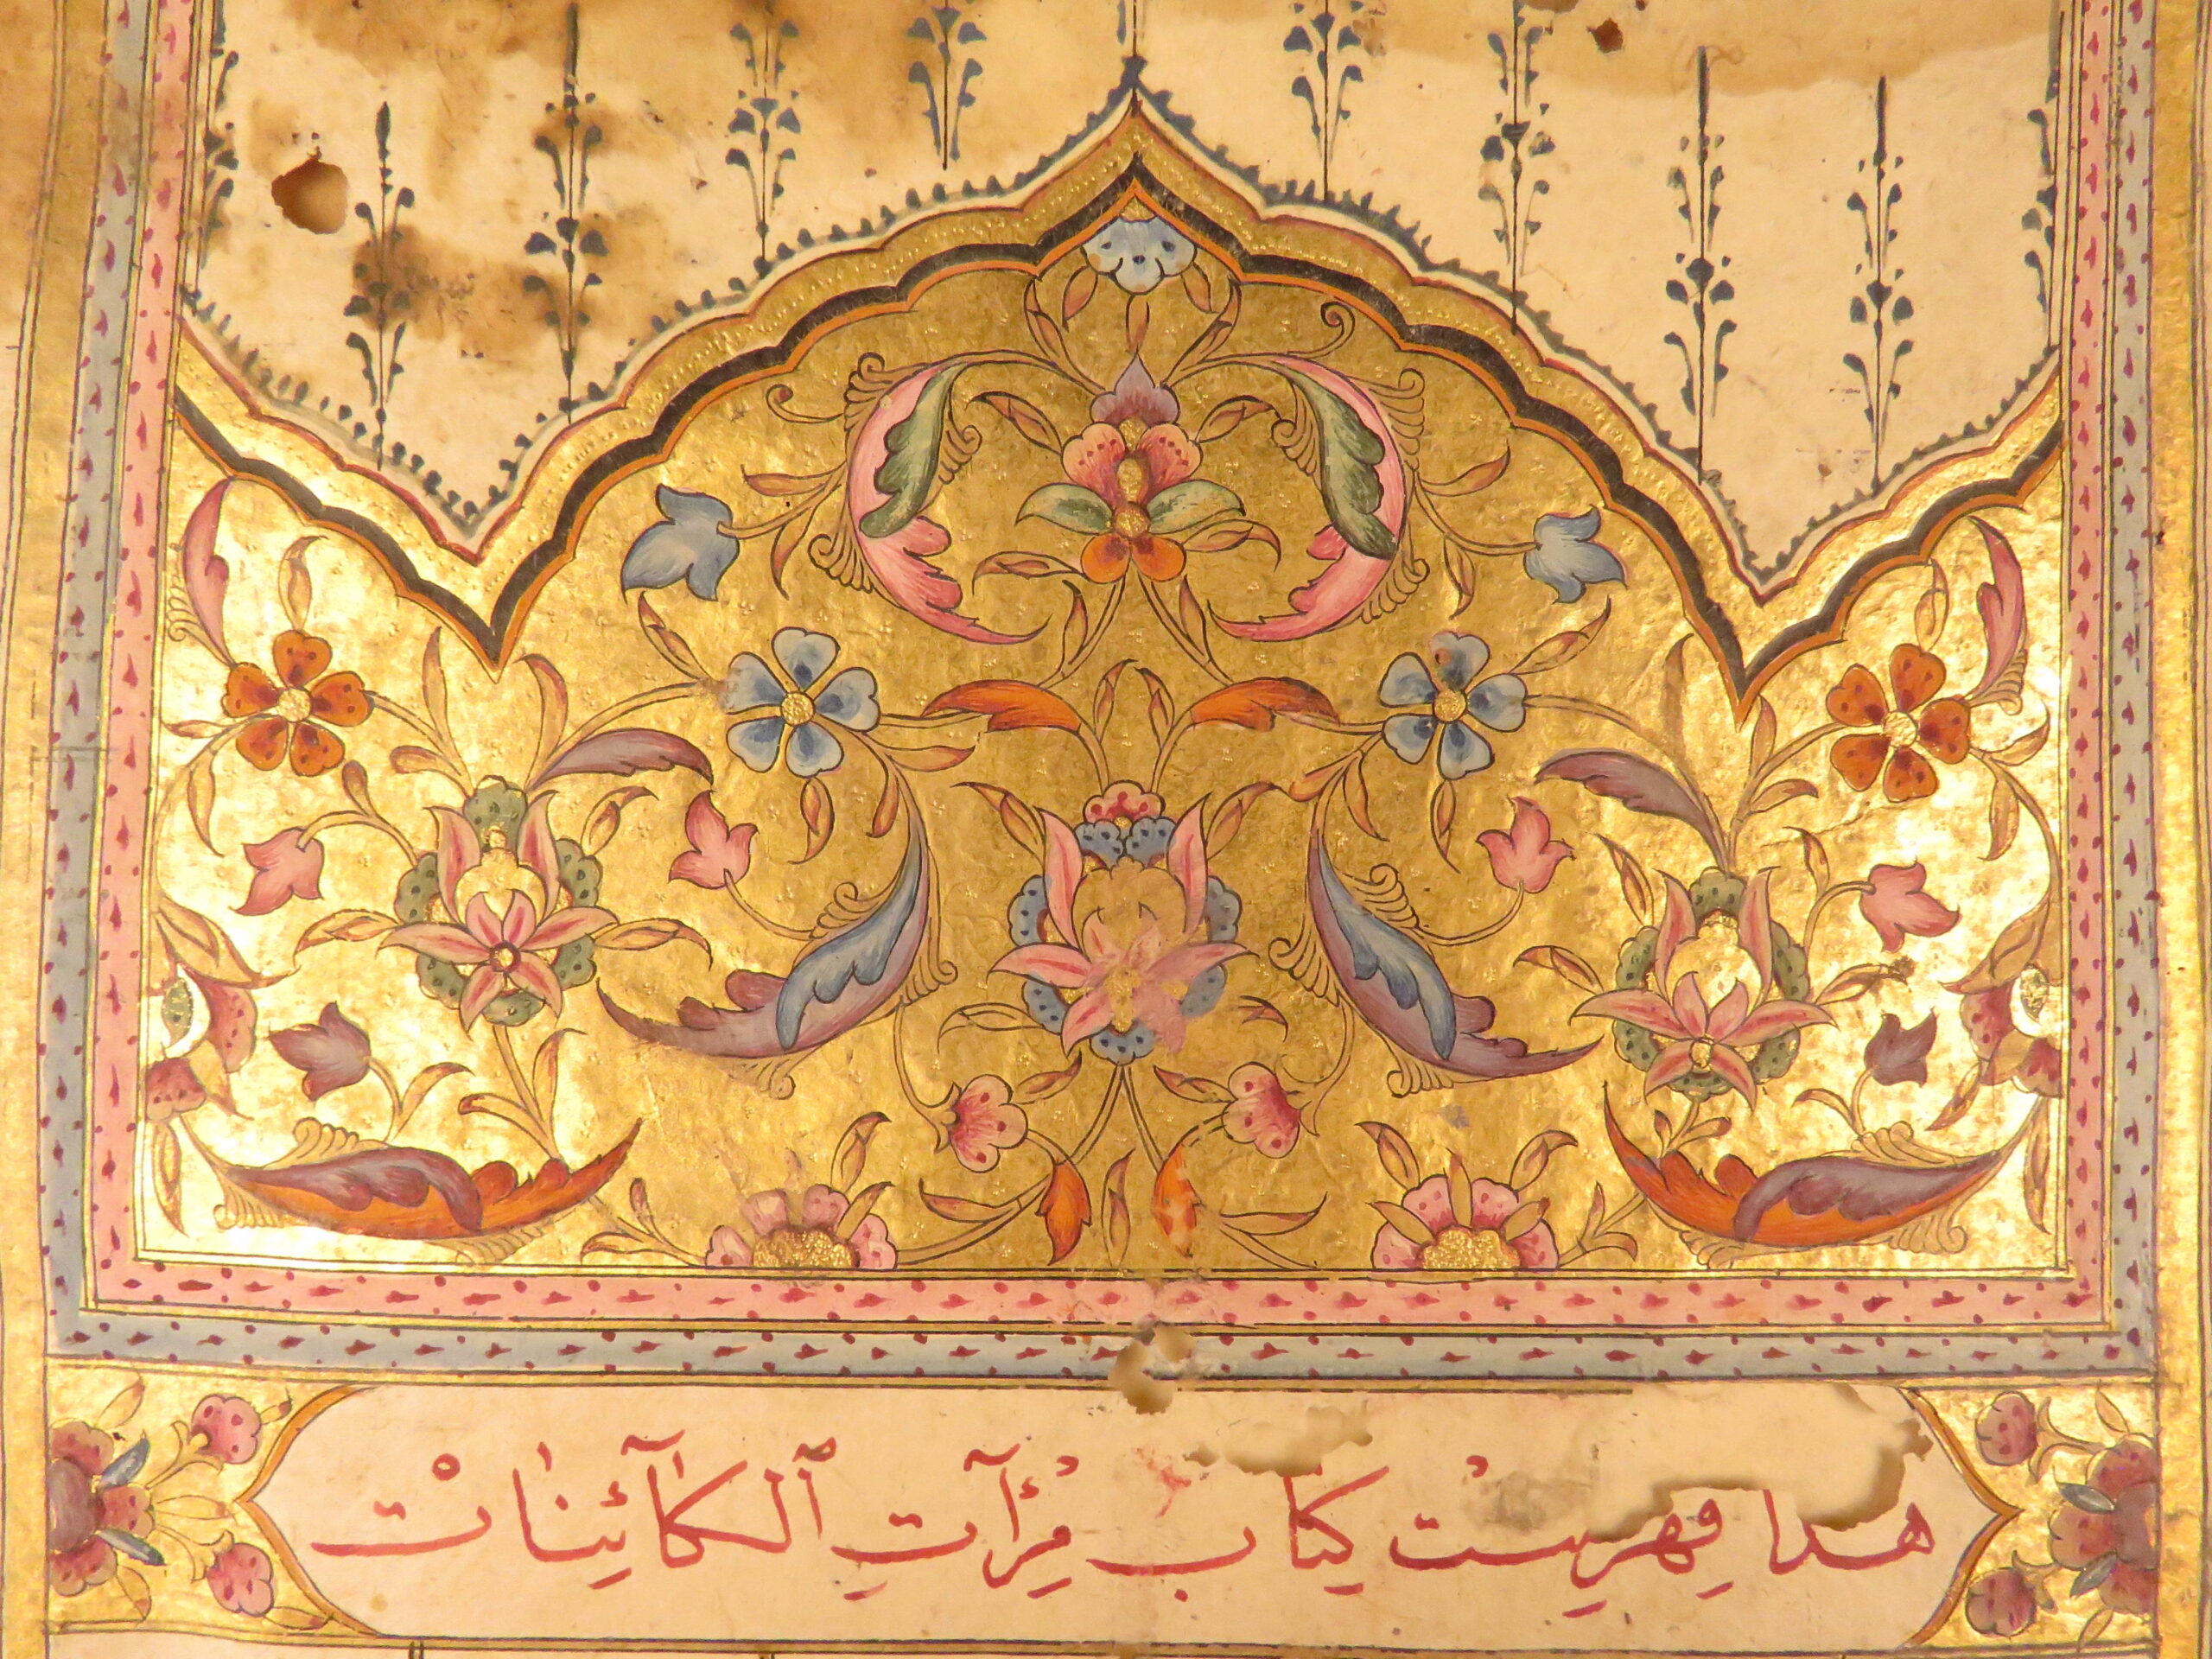 هذا فِهْرِسْت كِتَاب مِرْآتِ ٱلْكَآئِنَاتْ